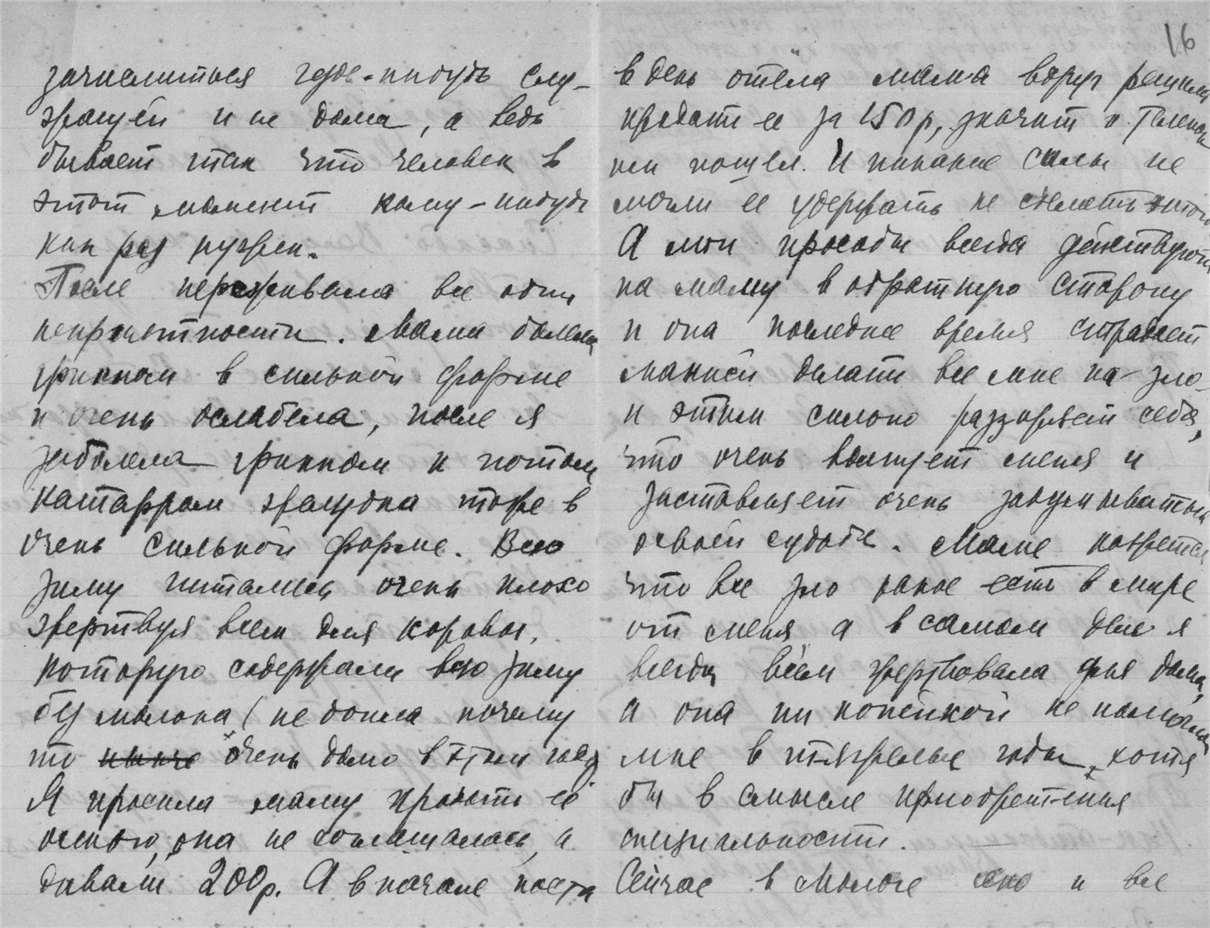 зачислиться где-нибудь слу-
жащей и не дома, а ведь
бывает так что человек в
этот момент кому-нибудь
как раз нужен.
После переживала все одни
неприятности. Мама болела
гриппом в сильной форме
и очень ослабела, после я
заболела гриппом и потом
катарром желудка тоже в
очень сильной форме. Всю
зиму питались очень плохо
жертвуя всем для коровы,
которую содержали всю зиму
без молока (не доила почему
то очень долго в этом году
Я просила маму продать её
осенью, она не соглашалась, а
давали 200 р. А в начале поста
16
в день отёла мама вдруг решила
продать ее за 150 р, значит и
пошел. И никакие силы не
могли ее удержать не сделать этого
А мои просьбы всегда действуют
на маму в обратную сторону
и она последнее время страдает
манией делать все мне на-зло
и этим сильно раззоряет себя,
что очень волнует меня и
заставляет очень задумываться
о своей судьбе. Маме кажется
что все зло какое есть в мире
от меня а в самом деле я
всегда всем жертвовала для дома,
а она ни копейкой не помогла
мне в тяжелые годы, хотя
бы в смысле приобретения
специальности.
Сейчас в Мологе сено и все